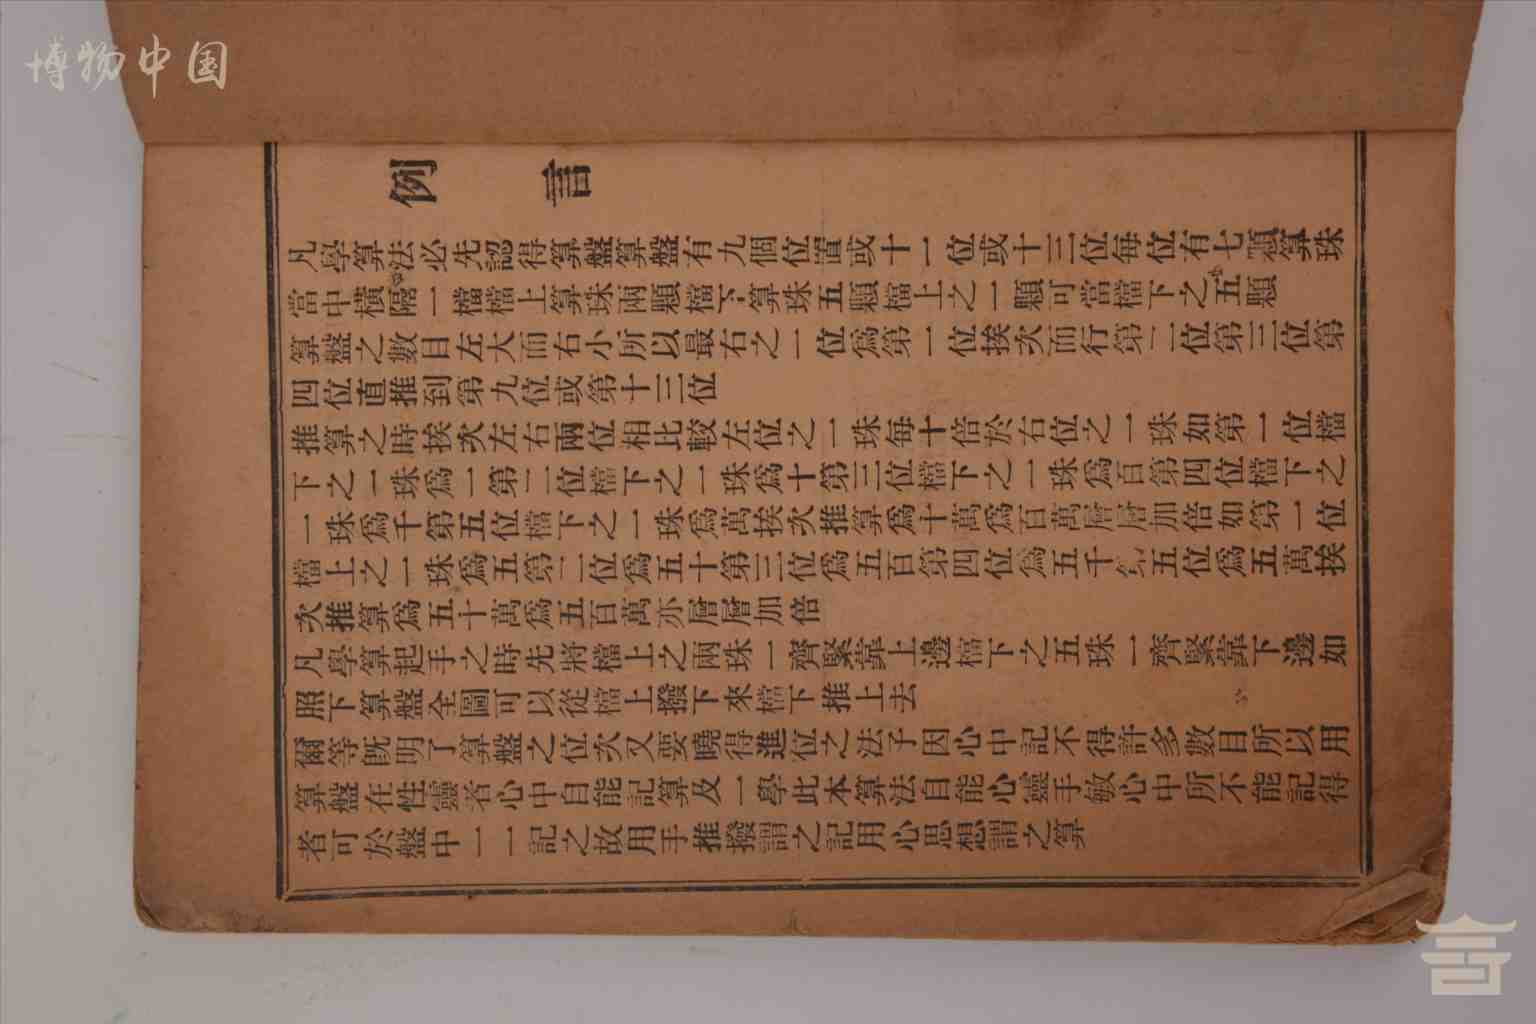 博物中国
例言
凡學算法必先認得算盤算盤有九個位置或十一位或十三位每位有七顆算珠
當中橫隔一檔檔上算珠兩顆檔下算珠五顆檔上之一顆可當檔下之五顆
算盤之數目左大而右小所以最右之一位爲第一位挨次而行第二位第三位第
四位直推到第九位或第十三位
推算之時挨次左右兩位相比較左位之一珠每十倍於右位之一珠如第一位檔
下之一珠爲一第二位檔下之一珠爲十第三位檔下之一珠爲百第四位檔下之
一珠爲千第五位檔下之一珠爲萬挨次推算爲十萬爲百萬層層加倍如第一位
檔上之一珠爲五第二位爲五十第三位爲五百第四位爲五千五位爲五萬挨
次推算爲五十萬爲五百萬亦層層加倍
凡學算起手之時先將檔上之兩珠一齊緊靠上邊檔下之五珠一齊緊靠下邊如
照下算盤全圖可以從檔上撥下來檔下推上去
爾等旣明了算盤之位次又要曉得進位之法子因心中記不得許多數目所以用
算盤在性靈者心中自能記算及一學此本算法自能心靈手敏心中所不能記得
者可於盤中一一記之故用手推撥謂之記用心思想謂之算